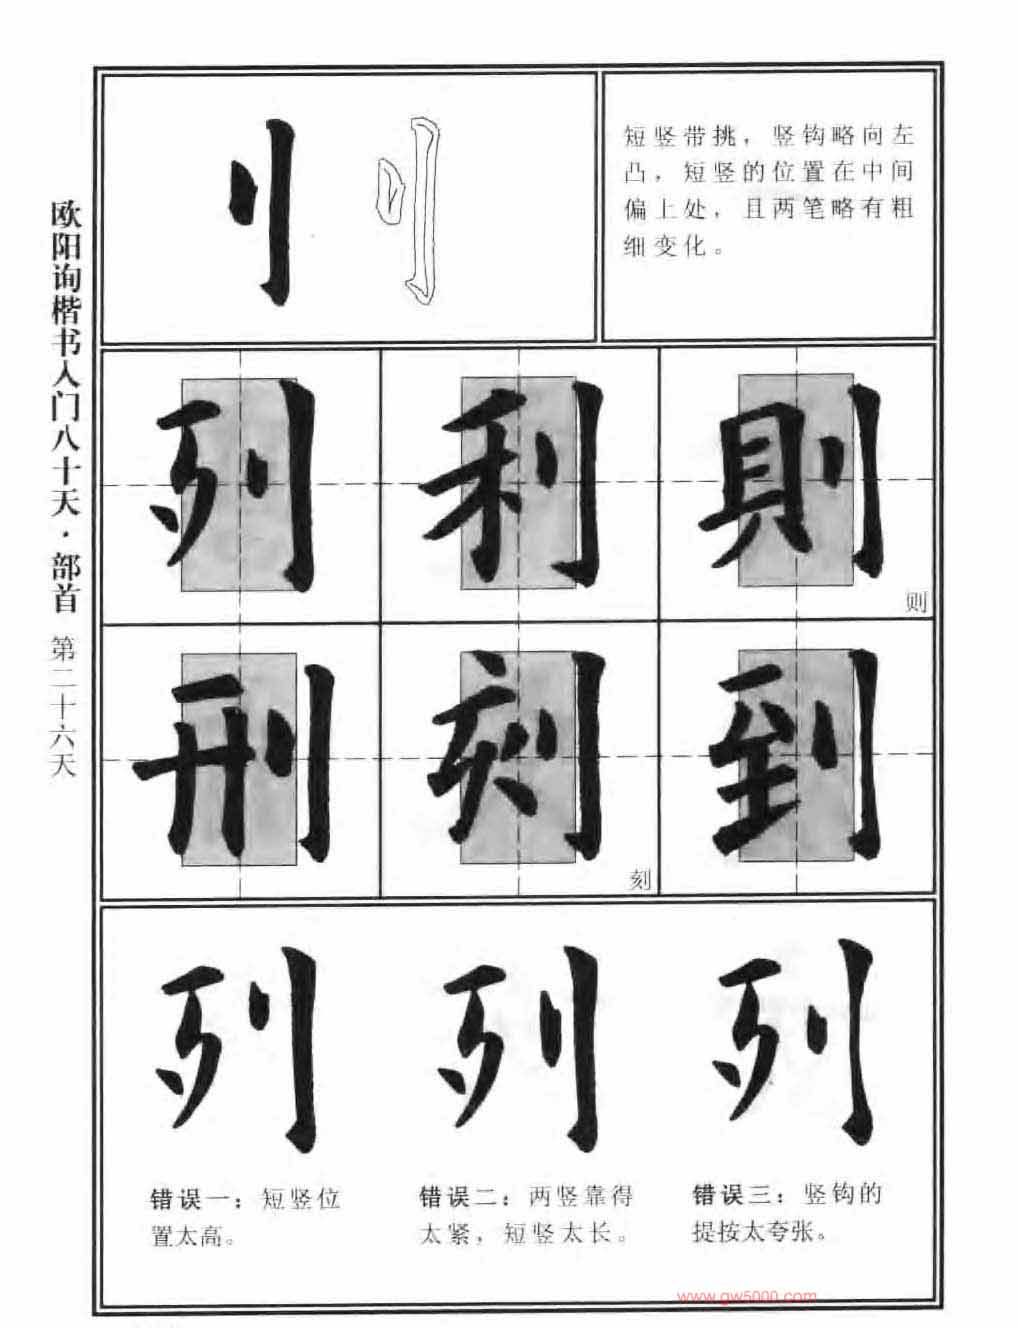 欧阳询楷书入门八十天·部首 第二十六天
刂 刂
短竖带挑，竖钩略向左
凸，短竖的位置在中间
偏上处，且两笔略有粗
细变化。
列 利 則
则
刑 刻 到
刻
列 列 列
错误一：短竖位
置太高。
错误二：两竖靠得
太紧，短竖太长。
错误三：竖钩的
提按太夸张。
www.gw5000.com